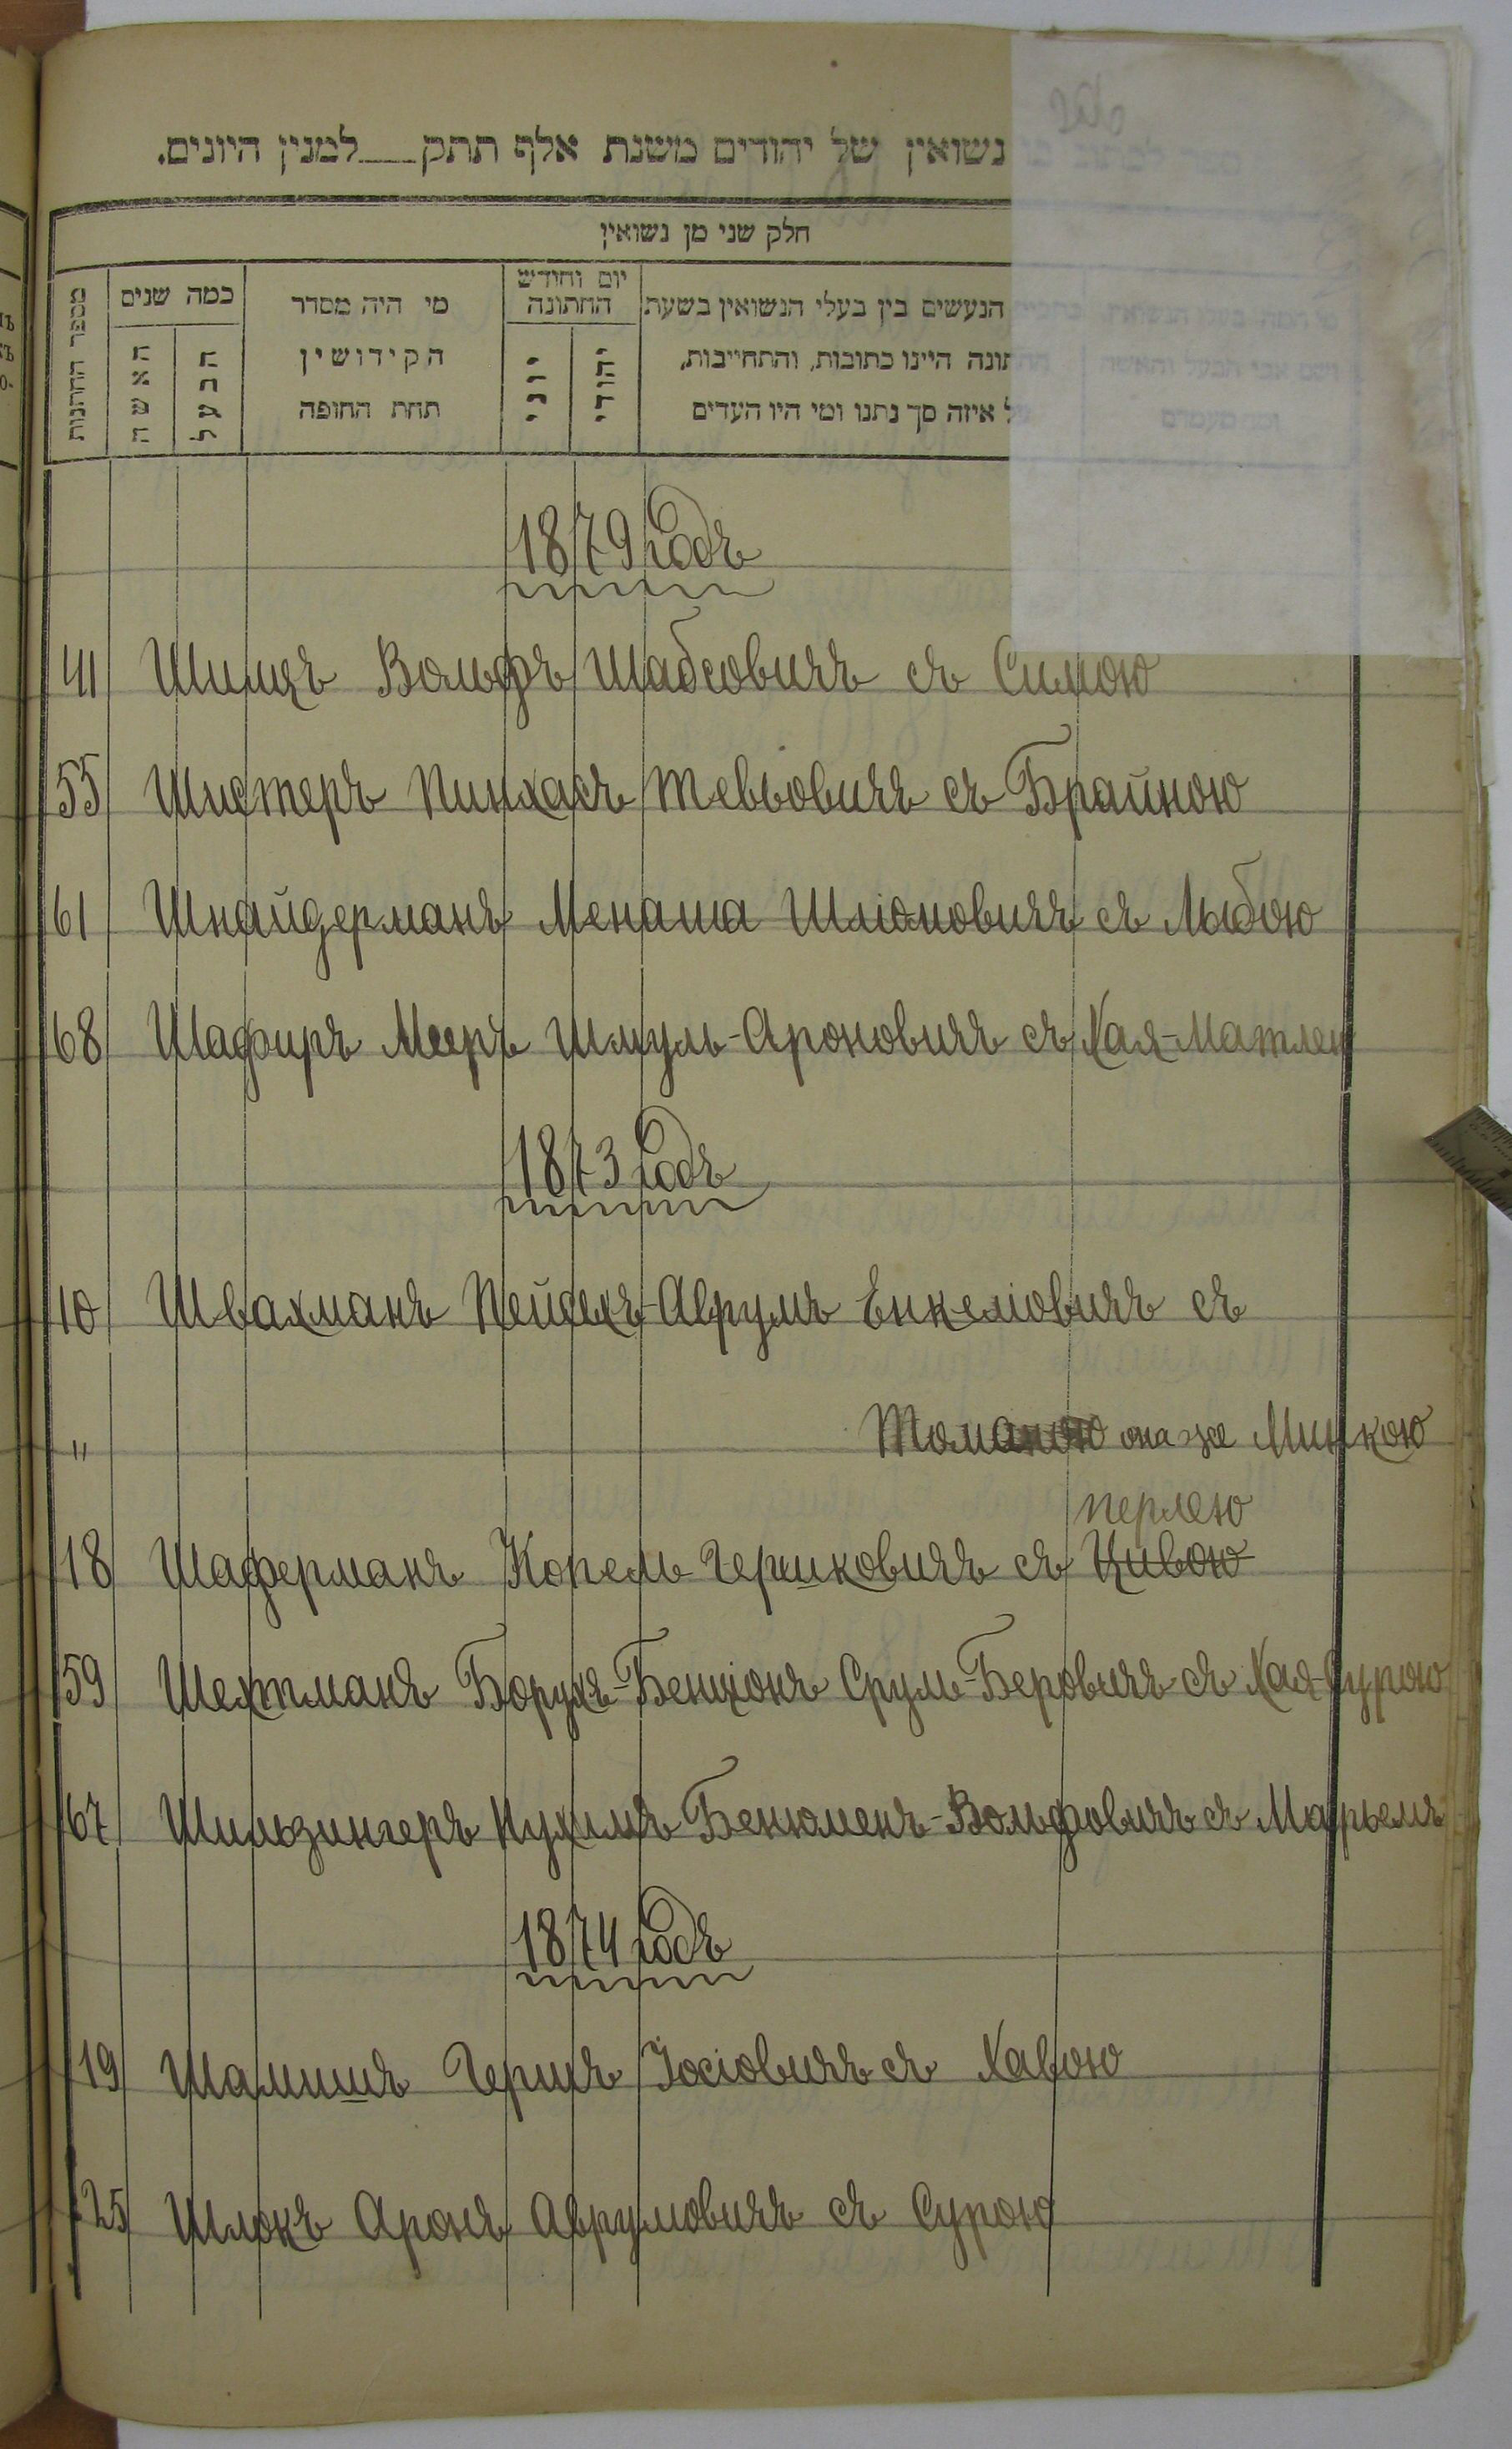 נשואין של יהודים משנת אלף תתק___למנין היונים.
חלק שני מן נשואין
מספר החתונות
כמה שנים
האשה
הבעל
מי היה מסדר
הקידושין
תחת החופה
יום וחודש
החתונה
יוני
יהודי
הנעשים בין בעלי הנשואין בשעת
תונה היינו כתובות, והתחייבות,
ל איזה סך נתנו ומי היו העדים
1879 Годъ
41 Шимцъ Вольфъ Шабсовичъ съ Симою
55 Шистеръ Пинхасъ Тевьовичъ съ Брайною
61 Шнайдерманъ Менаша Шліомовичъ съ Лыбою
68 Шафиръ Мееръ Шмуль-Ароновичъ съ Хая-Матлею
1873 Годъ
10 Швахманъ Пейсехъ-Аврумъ Енкеліовичъ съ
" она же Минкою
перлею
18 Шаферманъ Копель Гершковичъ съ Цивою
59 Шехтманъ Борухъ-Бенціонъ Сруль-Беровичъ съ Хая-Сурою
67 Шильзингеръ Нухимъ Бенюменъ-Вольфовичъ съ Марьемъ
1874 Годъ
19 Шамишъ Гершъ Іосіовичъ съ Хавою
25 Шлокъ Аронъ Аврумовичъ съ Сурою